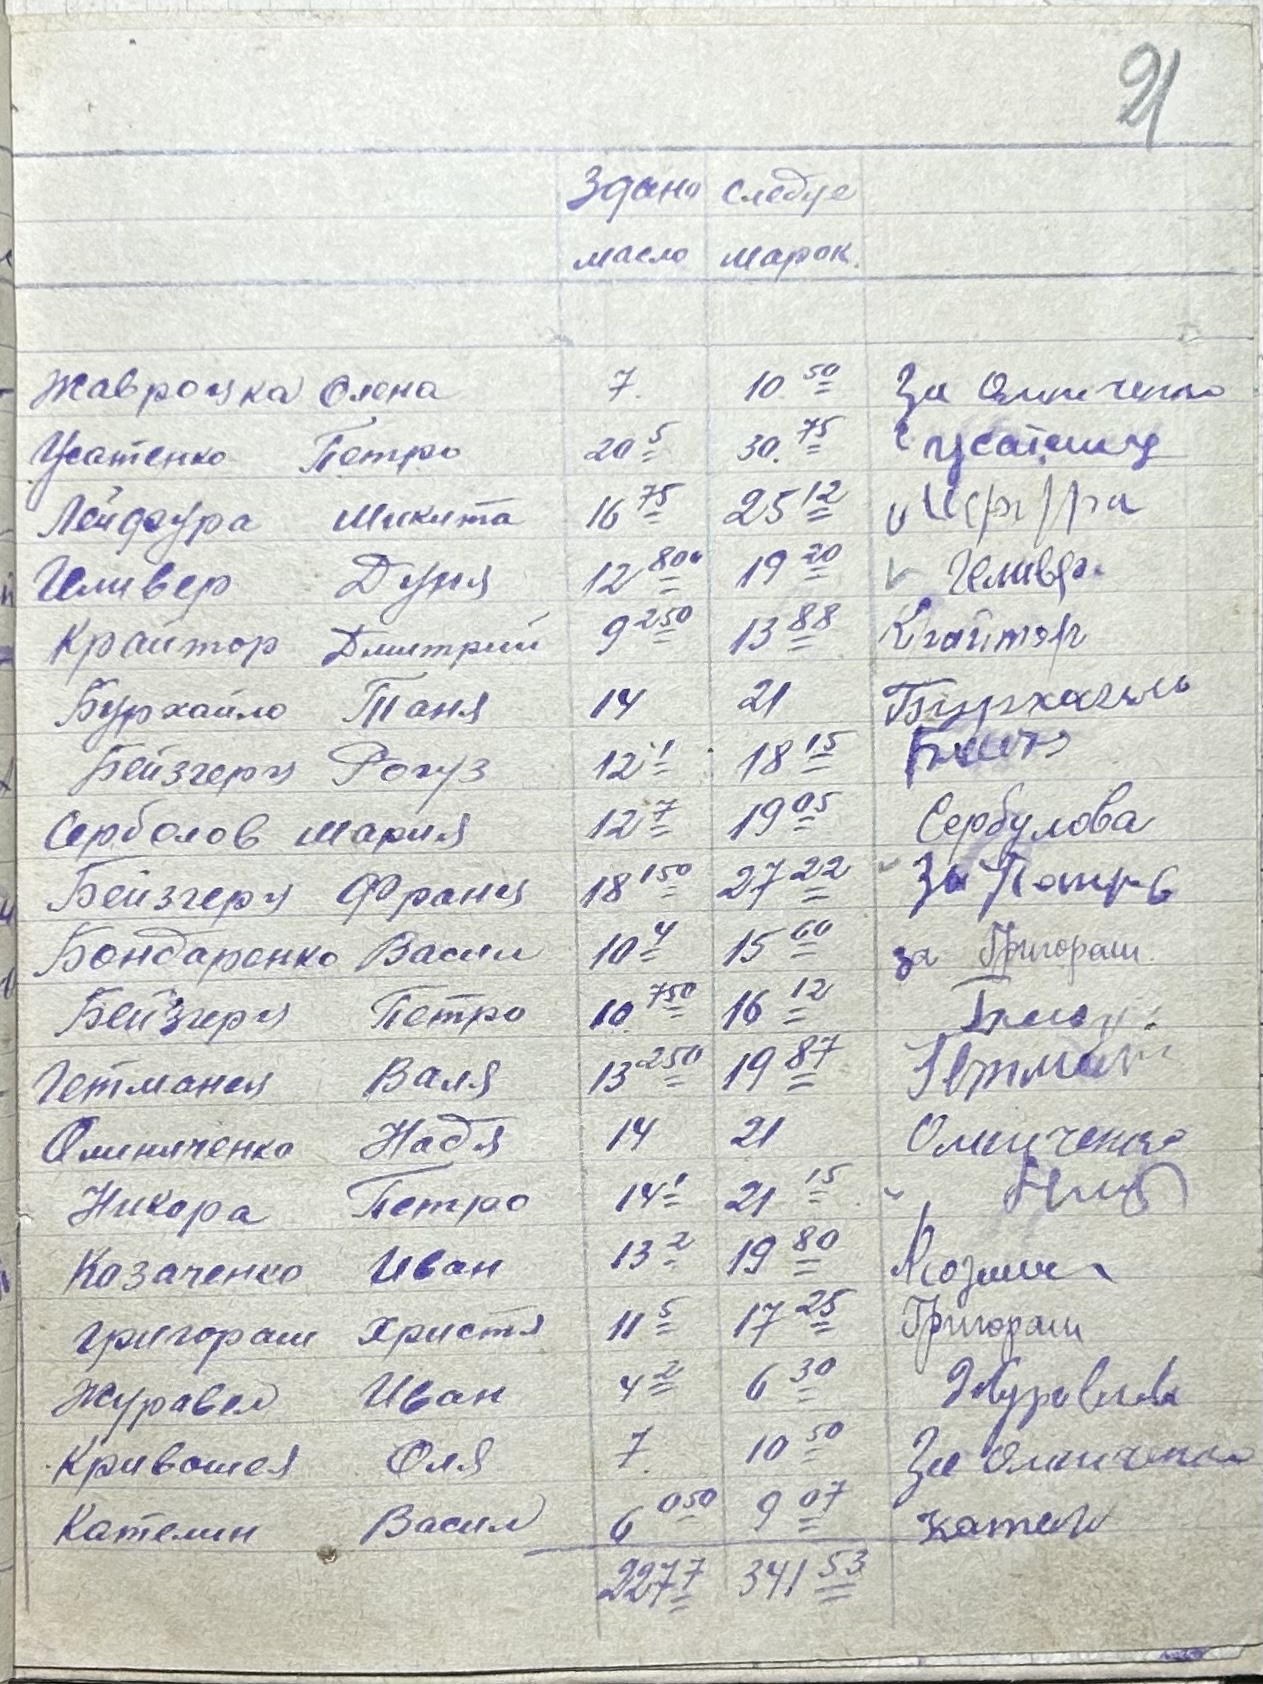 21
Здано следуе
масло марок.
Жавроцка Олена 7. 10 50 За Олиниченко
Усатенко Петро 20 5 30. 75 Усатенко
Лейфура Микита 16 75 25 12
Геливер Дуня 12 800 19 20 Геливер
Крайтор Дмитрий 9 250 13 88 Крайтор
Бурхайло Таня 14 21 Бурхайло
Бейзгеря Рогуз 12 1 18 15
Серболов Мария 12 7 19 05 Сербулова
Бейзгеря Франц 18 150 27 22 За
Бондаренко Васил 10 4 15 60 за Григораш
Бейзгеря Петро 10 750 16 12
Гетманся Валя 13 250 19 87 Гетман
Олиниченко Надя 14 21 Олиниченко
Никора Петро 14 1 21 15
Казаченко Иван 13 2 19 80
Григораш Христя 11 5 17 25 Григораш
Журавел Иван 4 2 6 30 Журавель
Кривошея Оля 7. 10 50 За Олиниченко
Кателин Васил 6 050 9 07 Кателин
227 7 341 53